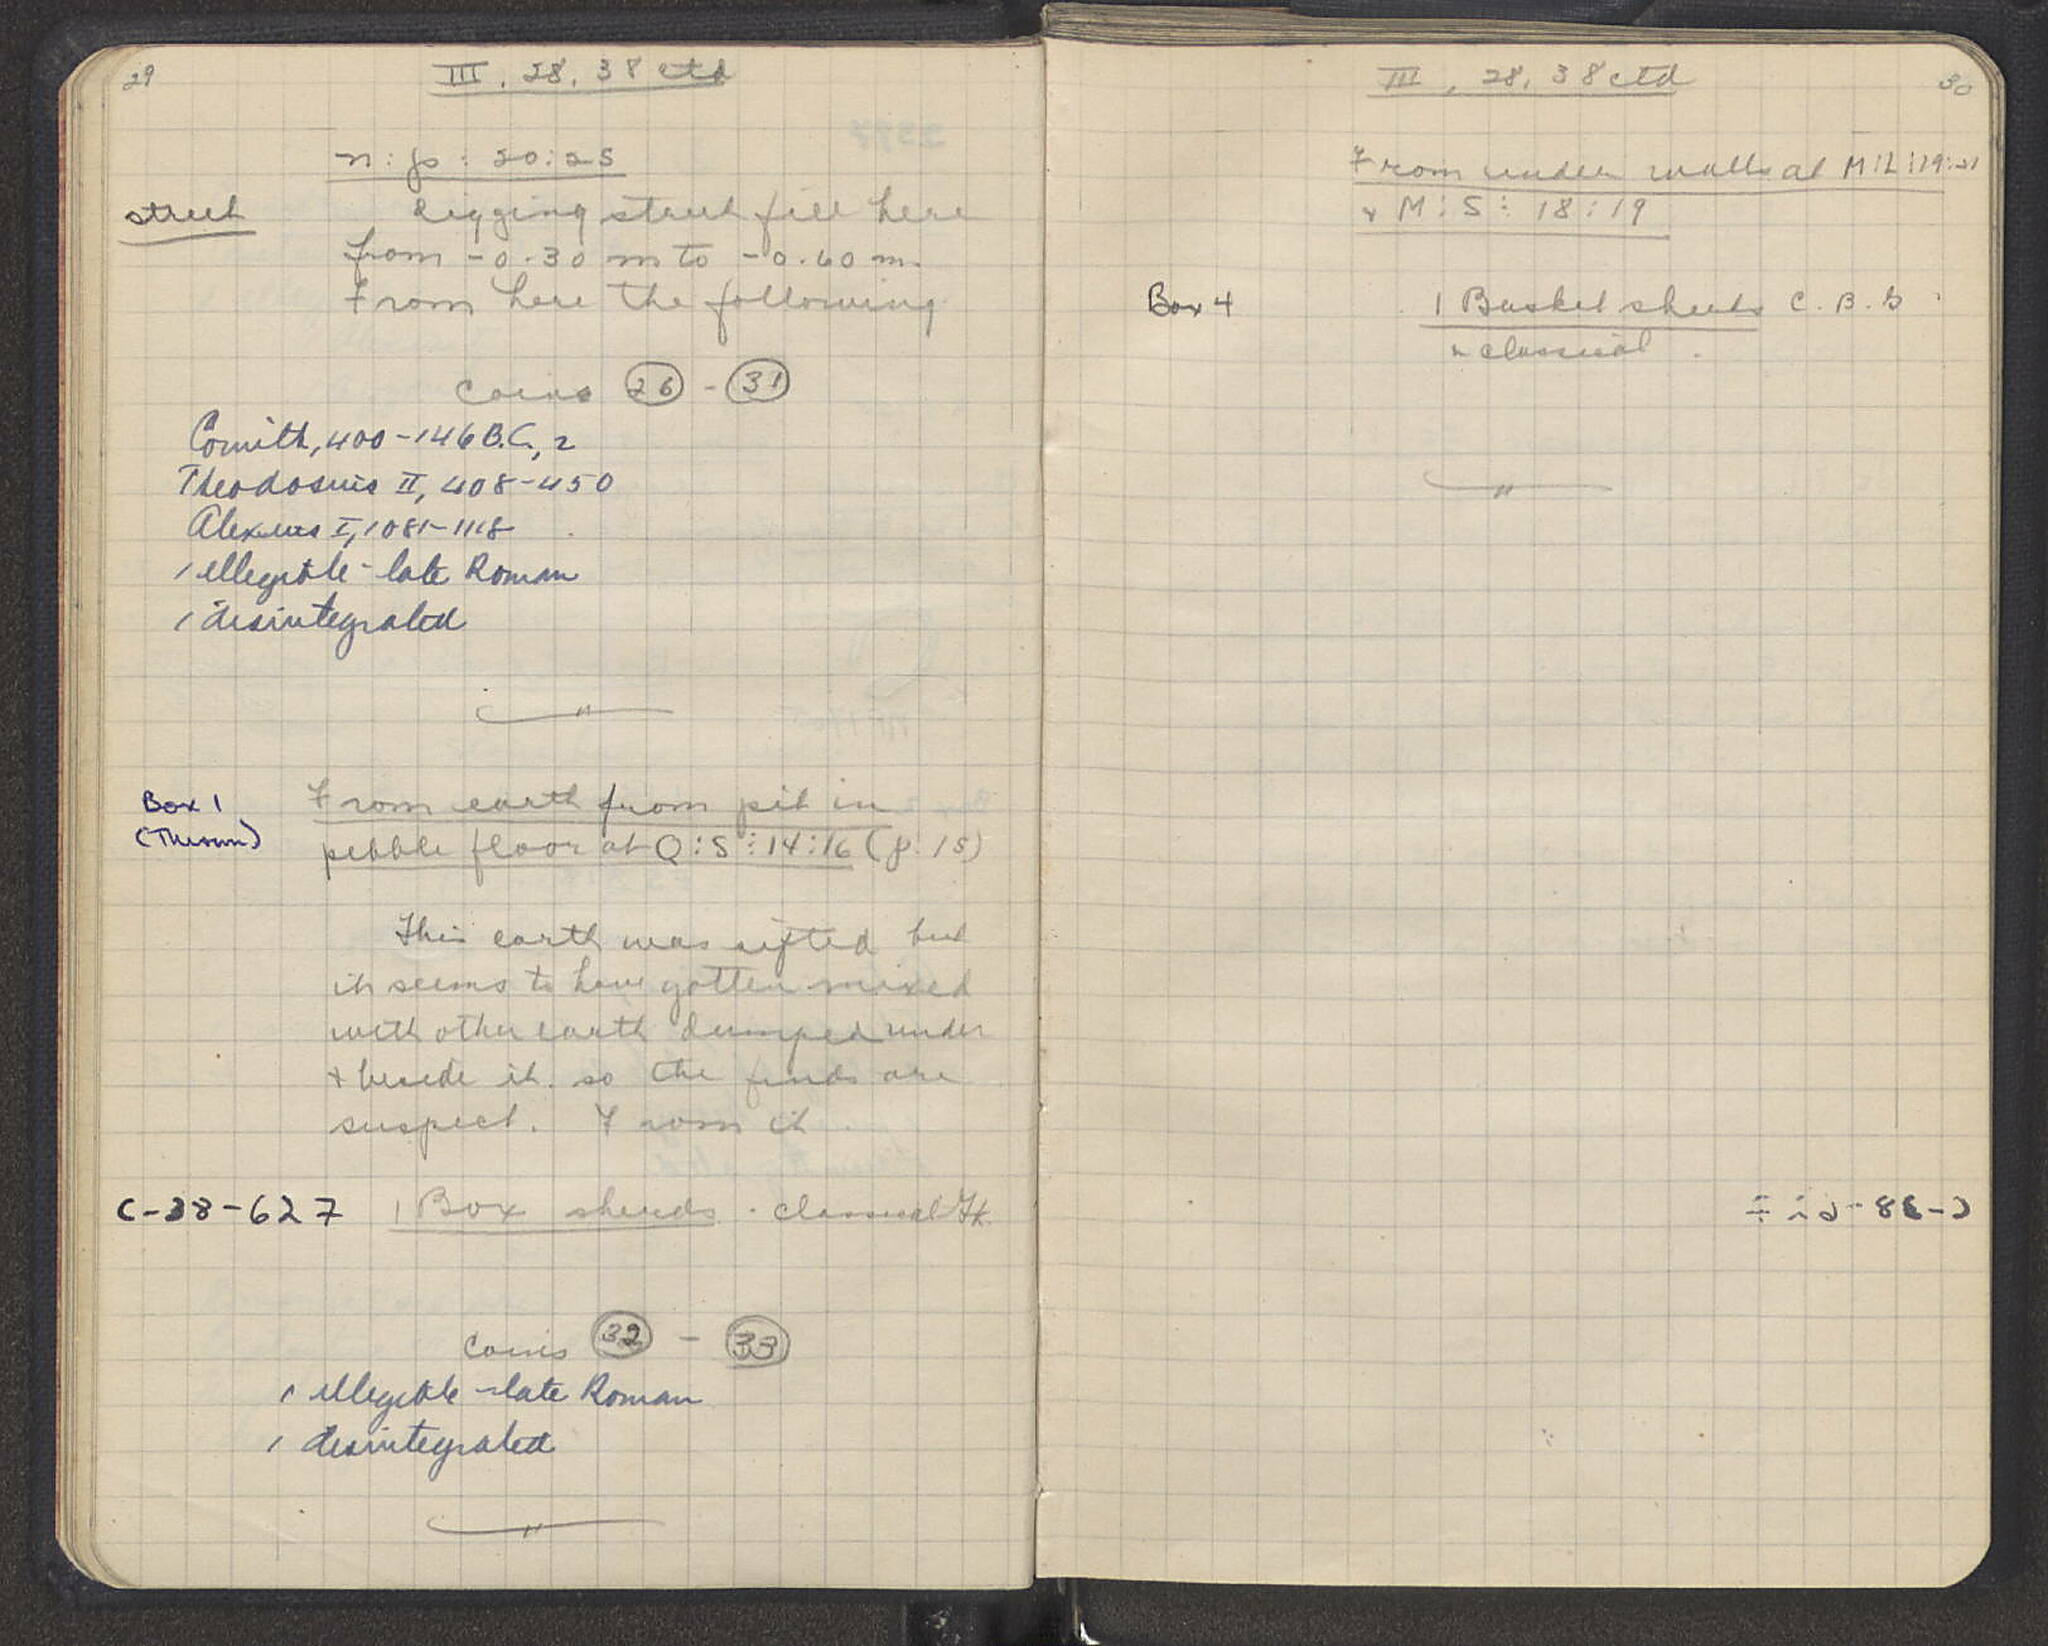 29
III, 28, 38 ctd
n : p : 20 : 25
street
Digging street fill here
from -0.30 m to -0.60 m.
From here the following
Coins 26 - 31
Corinth, 400-146 B.C., 2
Theodosius II, 408-450
Alexius I, 1081-1118
1 illegible - late Roman
1 disintegrated
Box 1
From earth from pit in
pebble floor at Q:S:14:16 (p. 15)
This earth was sifted but
it seems to have gotten mixed
with other earth dumped under
+ beside it. so the finds are
suspect. From it
C-38-627 1 Box sherds. classical Gk.
Coins 32 - 33
1 illegible - late Roman
1 disintegrated
III, 28, 38 ctd
30
From under walls at M:L:19:21
+ M:S:18:19
Box 4
1 Basket sherds C. B. G
+ classical.